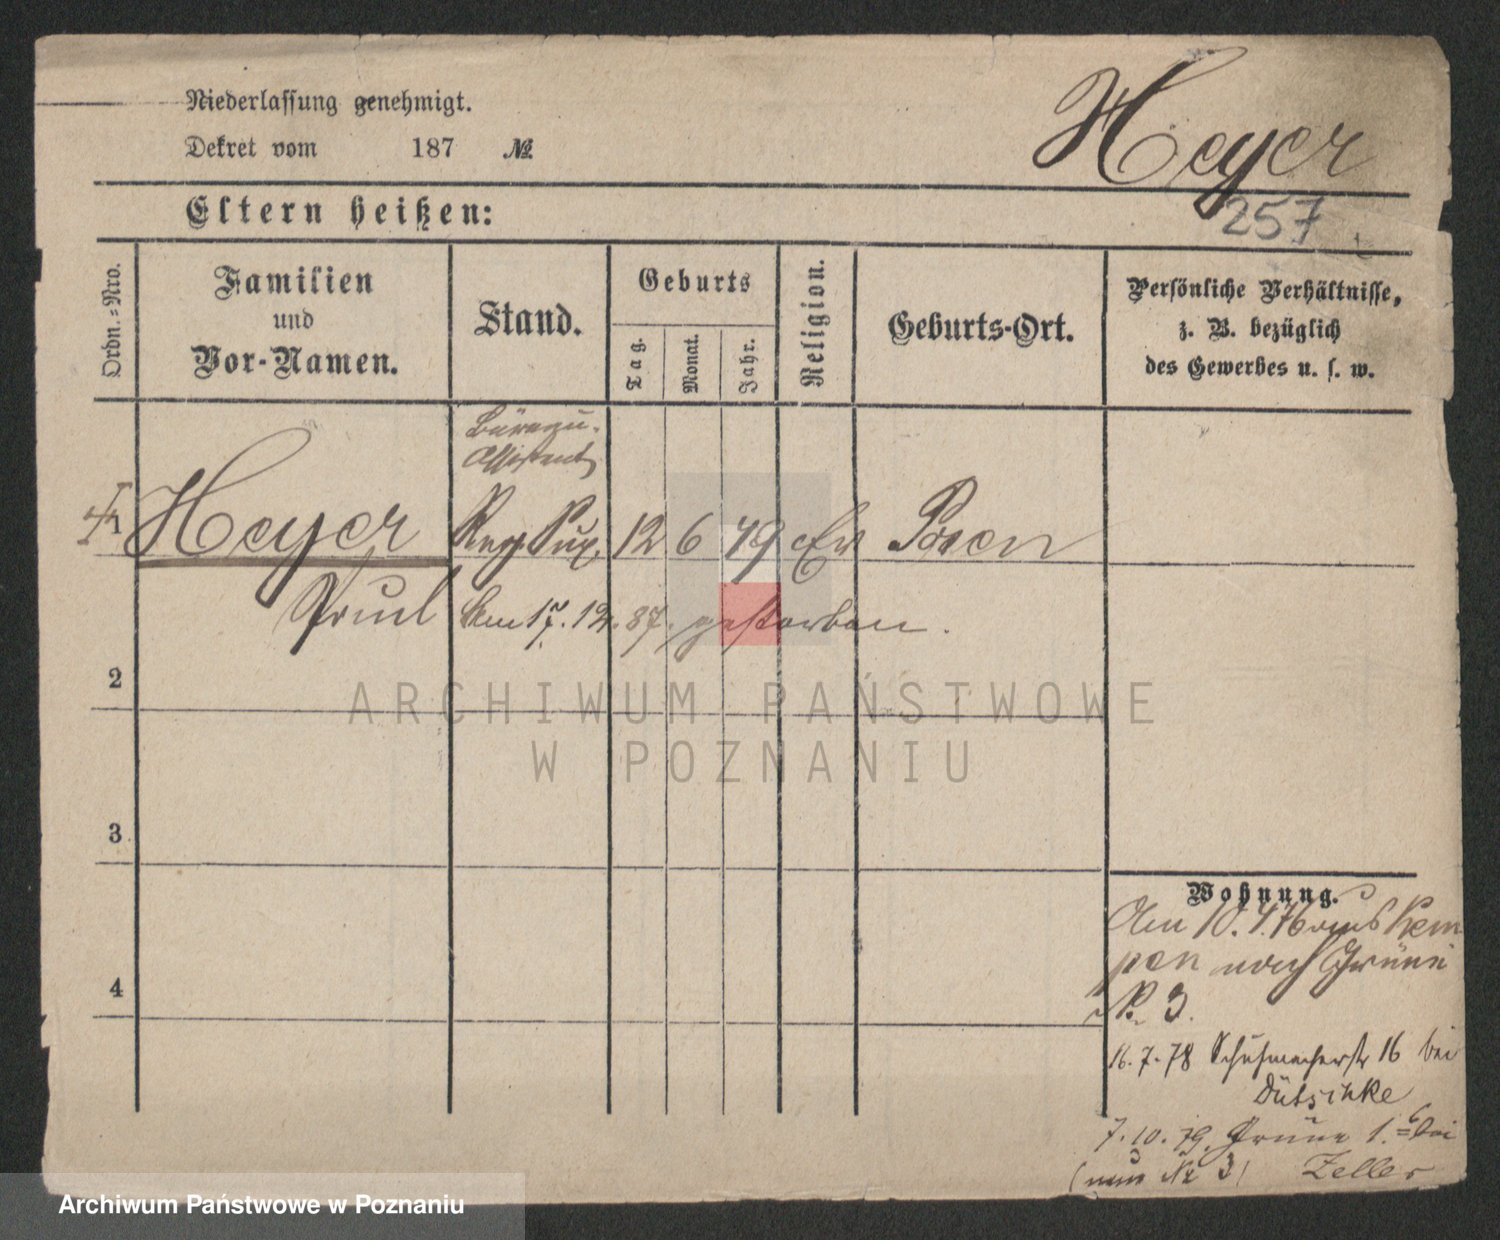 Niederlassung genehmigt.
Dekret vom 187 №
Heyer
Eltern heißen:
257
Ordn.-Nro.
Familien
und
Vor-Namen.
Stand.
Geburts
Tag.
Monat.
Jahr.
Religion.
Geburts-Ort.
Persönliche Verhältnisse,
z. B. bezüglich
des Gewerbes u. s. w.
Büreau-
Assistent
1 Heyer Reg. Sup. 12 6 49 Ev Posen
Paul Am 17. 12. 87. gestorben.
2
ARCHIWUM PAŃSTWOWE
W POZNANIU
3
4
Wohnung.
Am 10. 4. 76 aus Kem
pen nach Grüne
№ 3.
16. 7. 78 Schuhmacherstr 16 bei
Dütschke
7. 10. 79. Grüne 1. bei
(nun № 3) Zeller
Archiwum Państwowe w Poznaniu